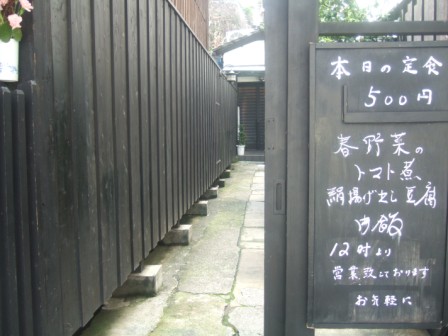 本日の定食
500円
春野菜の
トマト煮
絹揚げ出し豆腐
肉飯
12時より
営業致しております
お気軽に